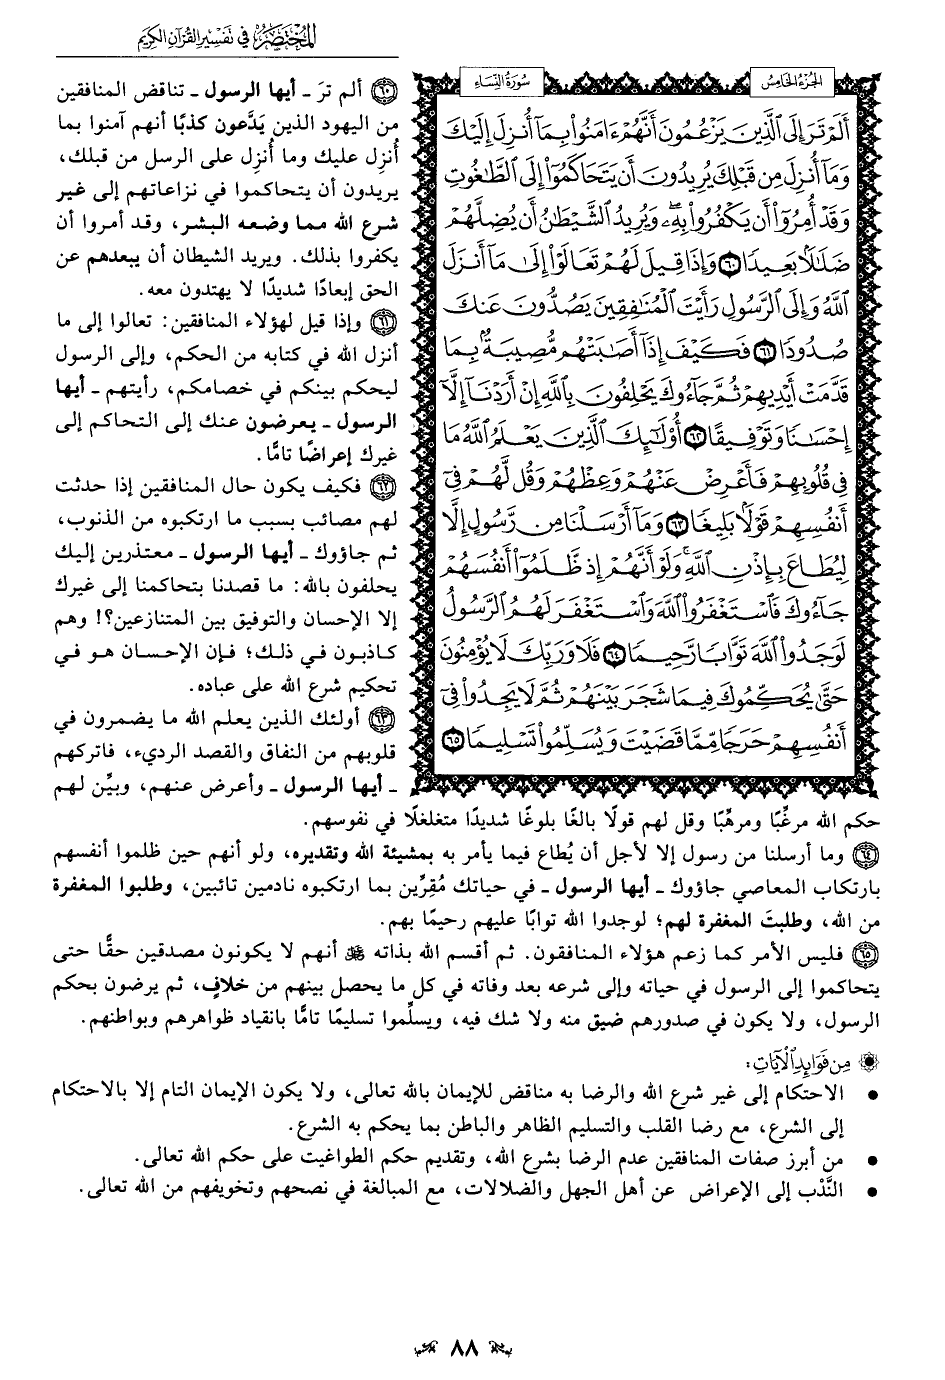 المختصر في تفسير القرآن الكريم
الجزء الخامس
سورة النساء
أَلَمْ تَرَ إِلَى ٱلَّذِينَ يَزْعُمُونَ أَنَّهُمْ ءَامَنُوا۟ بِمَآ أُنزِلَ إِلَيْكَ
وَمَآ أُنزِلَ مِن قَبْلِكَ يُرِيدُونَ أَن يَتَحَاكَمُوٓا۟ إِلَى ٱلطَّٰغُوتِ
وَقَدْ أُمِرُوٓا۟ أَن يَكْفُرُوا۟ بِهِۦ وَيُرِيدُ ٱلشَّيْطَٰنُ أَن يُضِلَّهُمْ
ضَلَٰلًۢا بَعِيدًا ٦٠ وَإِذَا قِيلَ لَهُمْ تَعَالَوْا۟ إِلَىٰ مَآ أَنزَلَ
ٱللَّهُ وَإِلَى ٱلرَّسُولِ رَأَيْتَ ٱلْمُنَٰفِقِينَ يَصُدُّونَ عَنكَ
صُدُودًا ٦١ فَكَيْفَ إِذَآ أَصَٰبَتْهُم مُّصِيبَةٌۢ بِمَا
قَدَّمَتْ أَيْدِيهِمْ ثُمَّ جَآءُوكَ يَحْلِفُونَ بِٱللَّهِ إِنْ أَرَدْنَآ إِلَّآ
إِحْسَٰنًا وَتَوْفِيقًا ٦٢ أُو۟لَٰٓئِكَ ٱلَّذِينَ يَعْلَمُ ٱللَّهُ مَا
فِى قُلُوبِهِمْ فَأَعْرِضْ عَنْهُمْ وَعِظْهُمْ وَقُل لَّهُمْ فِىٓ
أَنفُسِهِمْ قَوْلًۢا بَلِيغًا ٦٣ وَمَآ أَرْسَلْنَا مِن رَّسُولٍ إِلَّا
لِيُطَاعَ بِإِذْنِ ٱللَّهِ وَلَوْ أَنَّهُمْ إِذ ظَّلَمُوٓا۟ أَنفُسَهُمْ
جَآءُوكَ فَٱسْتَغْفَرُوا۟ ٱللَّهَ وَٱسْتَغْفَرَ لَهُمُ ٱلرَّسُولُ
لَوَجَدُوا۟ ٱللَّهَ تَوَّابًا رَّحِيمًا ٦٤ فَلَا وَرَبِّكَ لَا يُؤْمِنُونَ
حَتَّىٰ يُحَكِّمُوكَ فِيمَا شَجَرَ بَيْنَهُمْ ثُمَّ لَا يَجِدُوا۟ فِىٓ
أَنفُسِهِمْ حَرَجًا مِّمَّا قَضَيْتَ وَيُسَلِّمُوا۟ تَسْلِيمًا ٦٥
٦٠ ألم ترَ ـ أيها الرسول ـ تناقض المنافقين
من اليهود الذين يَدَّعون كذبًا أنهم آمنوا بما
أُنزِل عليك وما أُنزِل على الرسل من قبلك،
يريدون أن يتحاكموا في نزاعاتهم إلى غير
شرع الله مما وضعه البشر، وقد أمروا أن
يكفروا بذلك. ويريد الشيطان أن يبعدهم عن
الحق إبعادًا شديدًا لا يهتدون معه.
٦١ وإذا قيل لهؤلاء المنافقين: تعالوا إلى ما
أنزل الله في كتابه من الحكم، وإلى الرسول
ليحكم بينكم في خصامكم، رأيتهم ـ أيها
الرسول ـ يعرضون عنك إلى التحاكم إلى
غيرك إعراضًا تامًّا.
٦٢ فكيف يكون حال المنافقين إذا حدثت
لهم مصائب بسبب ما ارتكبوه من الذنوب،
ثم جاؤوك ـ أيها الرسول ـ معتذرين إليك
يحلفون بالله: ما قصدنا بتحاكمنا إلى غيرك
إلا الإحسان والتوفيق بين المتنازعين؟! وهم
كاذبون في ذلك؛ فإن الإحسان هو في
تحكيم شرع الله على عباده.
٦٣ أولئك الذين يعلم الله ما يضمرون في
قلوبهم من النفاق والقصد الرديء، فاتركهم
ـ أيها الرسول ـ وأعرض عنهم، وبيِّن لهم
حكم الله مرغِّبًا ومرهِّبًا وقل لهم قولًا بالغًا بلوغًا شديدًا متغلغلًا في نفوسهم.
٦٤ وما أرسلنا من رسول إلا لأجل أن يُطاع فيما يأمر به بمشيئة الله وتقديره، ولو أنهم حين ظلموا أنفسهم
بارتكاب المعاصي جاؤوك ـ أيها الرسول ـ في حياتك مُقِرِّين بما ارتكبوه نادمين تائبين، وطلبوا المغفرة
من الله، وطلبتَ المغفرة لهم؛ لوجدوا الله توابًا عليهم رحيمًا بهم.
٦٥ فليس الأمر كما زعم هؤلاء المنافقون. ثم أقسم الله بذاته ﷻ أنهم لا يكونون مصدقين حقًّا حتى
يتحاكموا إلى الرسول في حياته وإلى شرعه بعد وفاته في كل ما يحصل بينهم من خلافٍ، ثم يرضون بحكم
الرسول، ولا يكون في صدورهم ضيق منه ولا شك فيه، ويسلِّموا تسليمًا تامًّا بانقياد ظواهرهم وبواطنهم.
من فوائد الآيات:
• الاحتكام إلى غير شرع الله والرضا به مناقض للإيمان بالله تعالى، ولا يكون الإيمان التام إلا بالاحتكام
إلى الشرع، مع رضا القلب والتسليم الظاهر والباطن بما يحكم به الشرع.
• من أبرز صفات المنافقين عدم الرضا بشرع الله، وتقديم حكم الطواغيت على حكم الله تعالى.
• النَّدْب إلى الإعراض عن أهل الجهل والضلالات، مع المبالغة في نصحهم وتخويفهم من الله تعالى.
٨٨